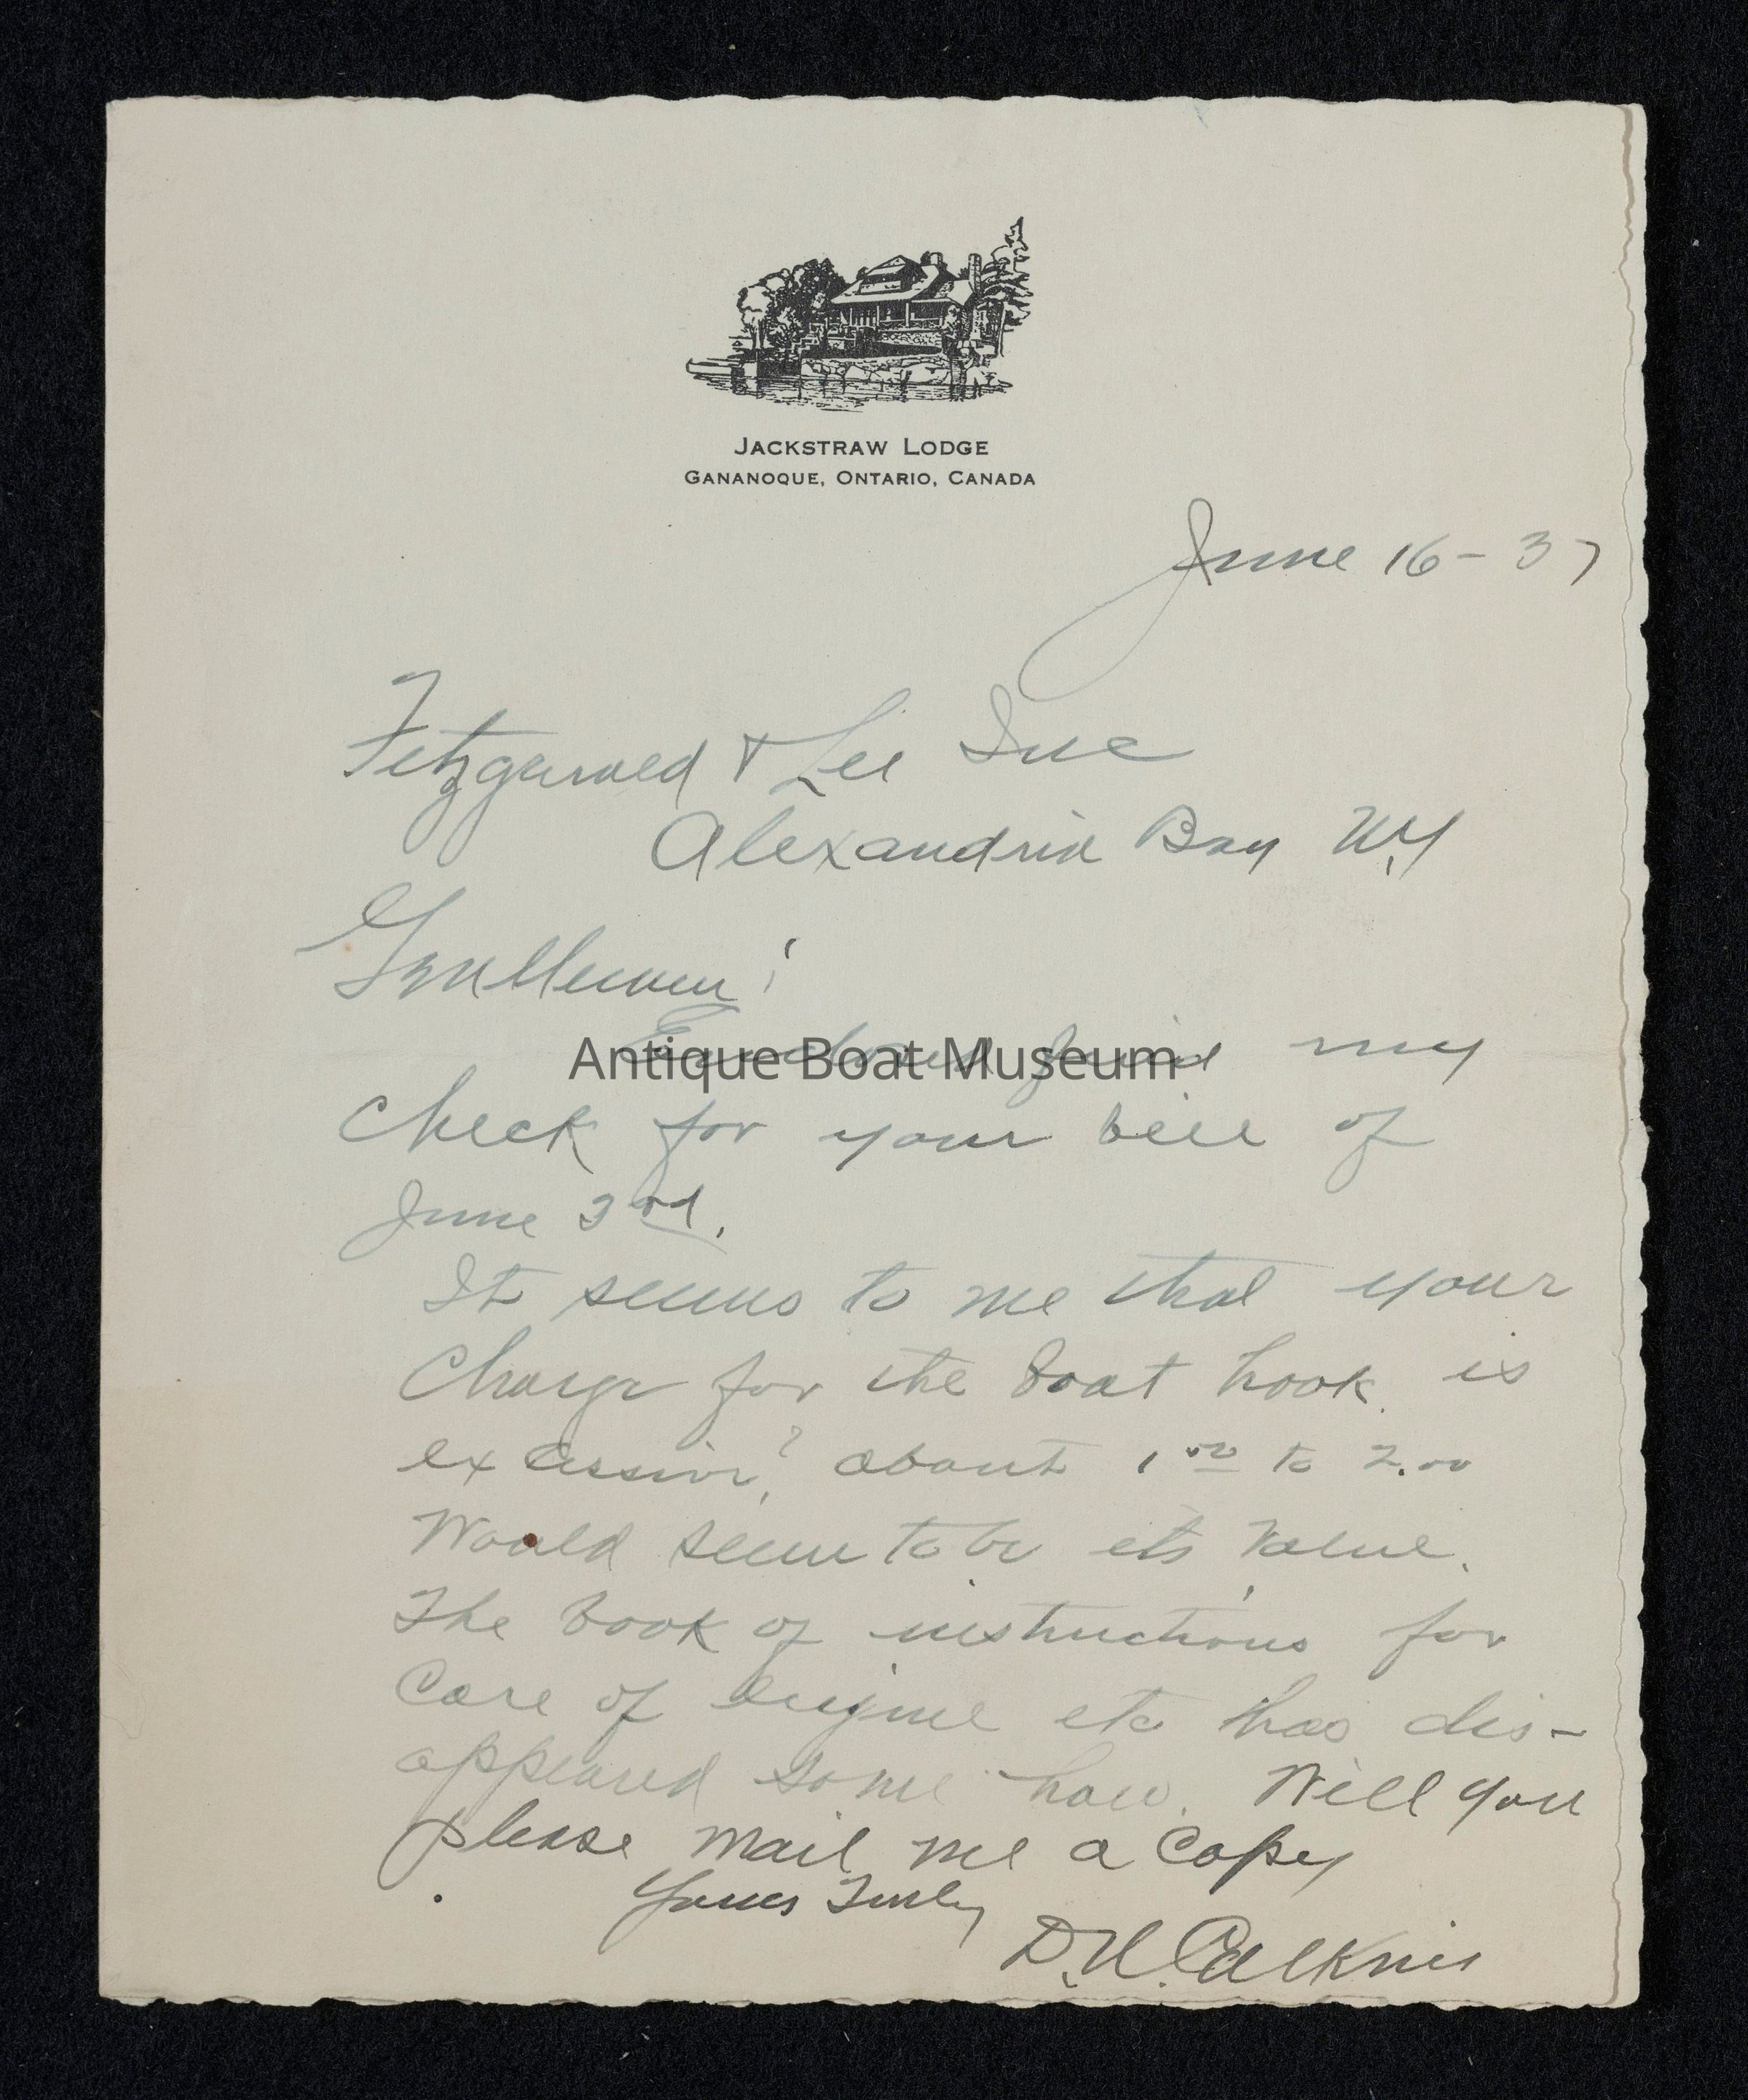 JACKSTRAW LODGE
GANANOQUE, ONTARIO, CANADA
June 16 - 37
Fitzgerald & Lee Inc
Alexandria Bay N.Y
Gentlemen:
Enclosed find my
Antique Boat Museum
check for your bill of
June 3rd.
It seems to me that your
Charge for the boat hook is
excessive? about 1.00 to 2.00
Would seem to be its value.
The book of instructions for
Care of engine etc has dis-
appeared some how. Will you
please mail me a copy
Yours Truly
D.